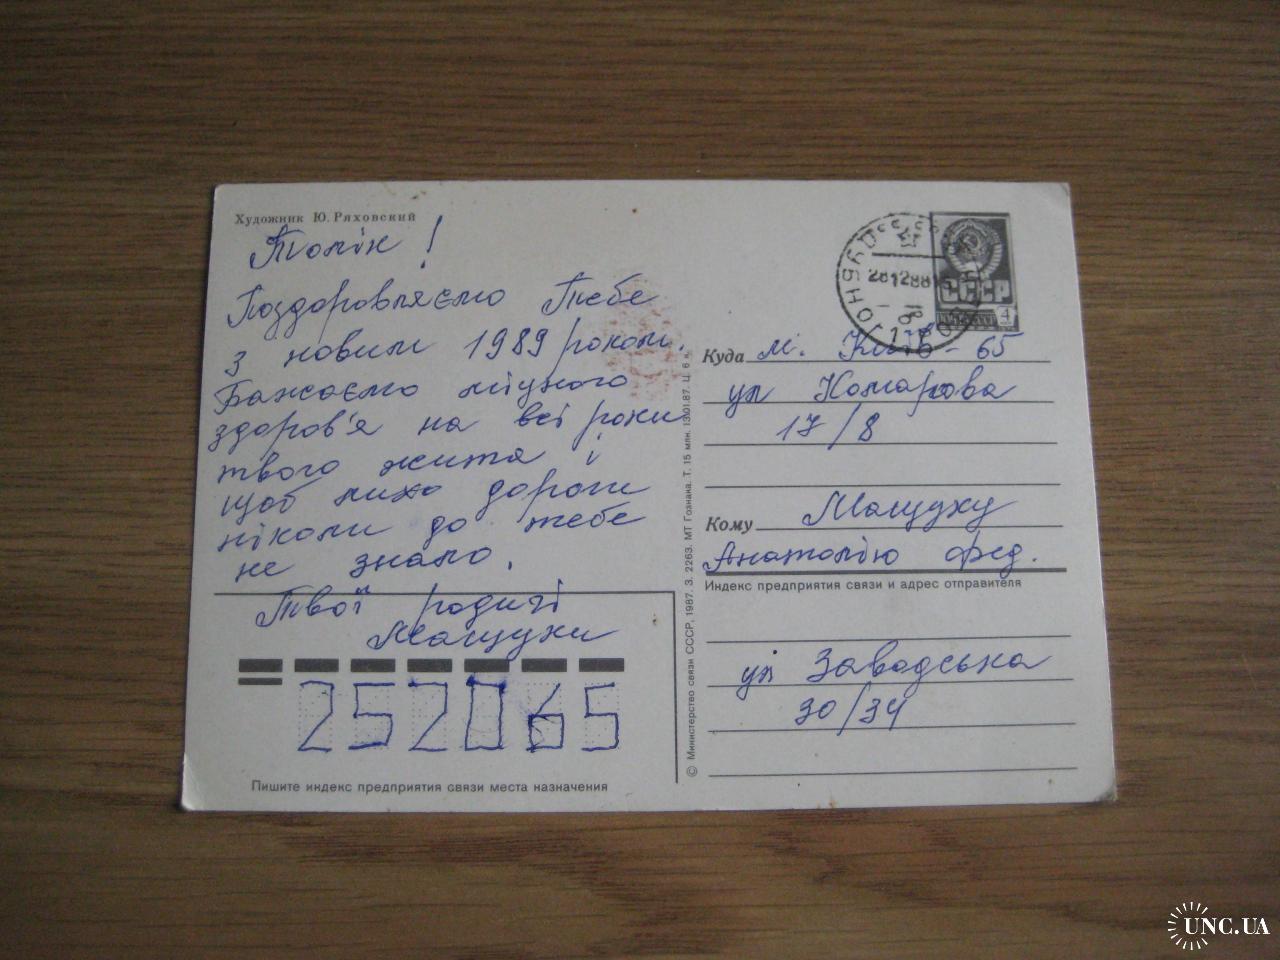 Художник Ю. Ряховский
Толік!
Поздоровляємо Тебе
з новим 1989 роком.
Бажаємо міцного
здоров'я на всі роки
твого життя і
щоб лихо дороги
ніколи до тебе
не знало.
Твої родичі
Мащухи
252065
Пишите индекс предприятия связи места назначения
© Министерство связи СССР, 1987. З. 2263. МТ Гознака. Т. 15 млн. 13.01.87. Ц. 6 к.
281288
СССР
4
Куда м. Київ - 65
ул Комарова
17/8
Кому Мащуку
Анатолію Фед.
Индекс предприятия связи и адрес отправителя
ул Заводська
30/34
UNC.UA